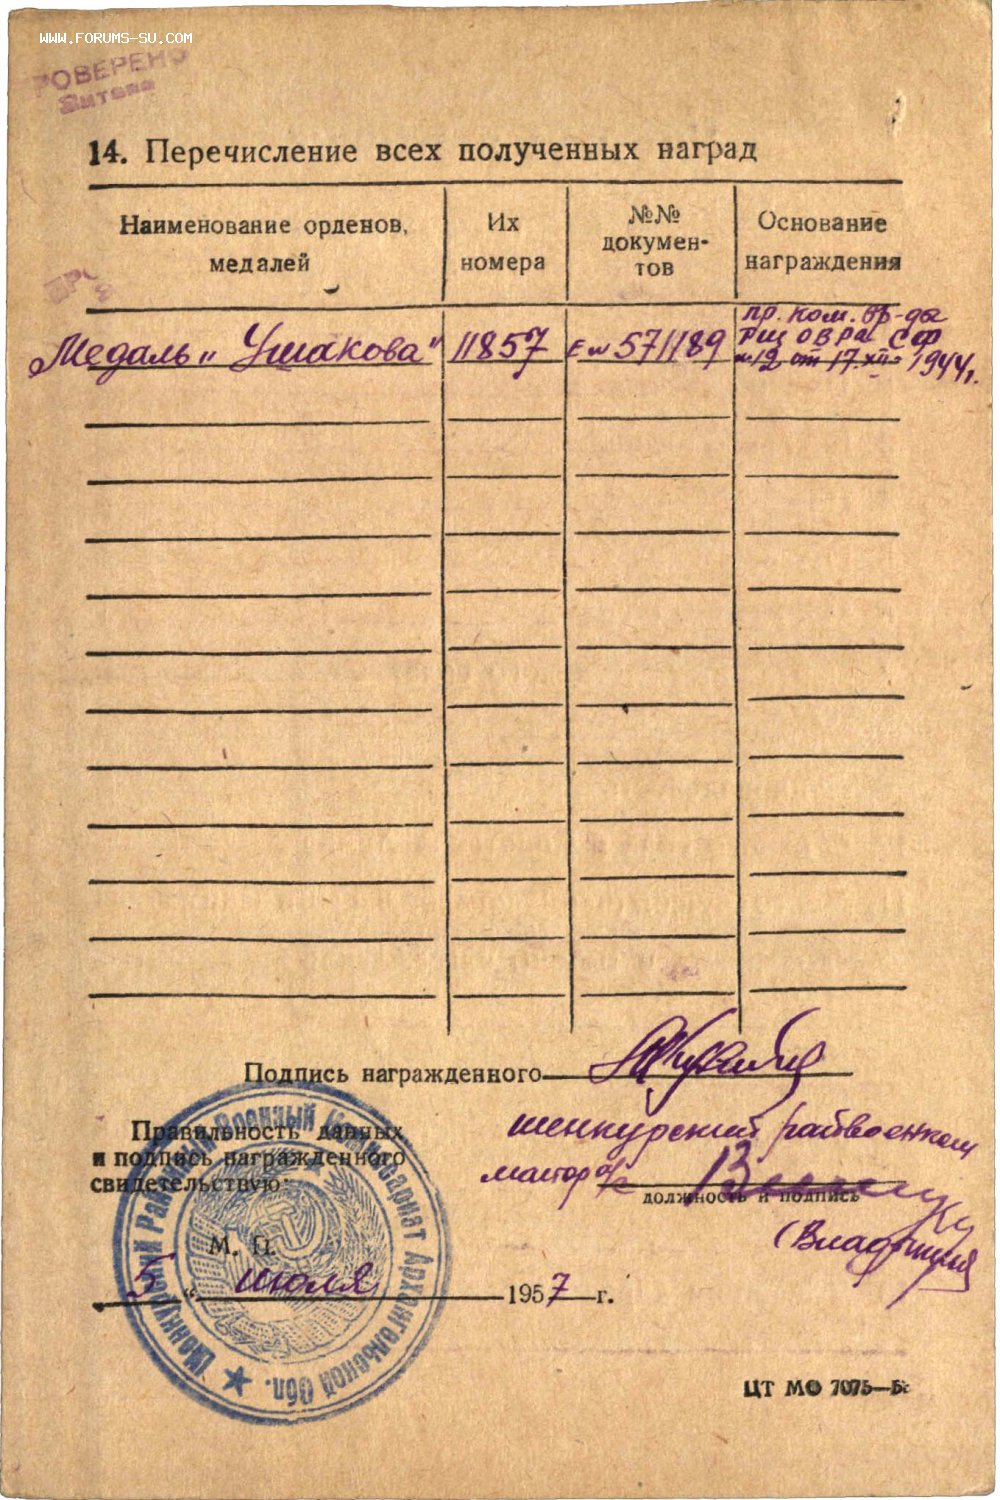 WWW.FORUMS-SU.COM
РОВЕРЕНО
14. Перечисление всех полученных наград
Наименование орденов, медалей
Их номера
№№ докумен- тов
Основание награждения
Медаль „Ушакова"
11857
Е № 571189
пр. ком. бр-ды
ТЩ ОВРа СФ
№ 12 от 17.XII- 1944г.
Подпись награжденного
Правильность данных
и подпись награжденного
свидетельствую:
Шенкурский райвоенком
майор а/с
должность и подпись
М. П.
5 " июля 1957 г.
Шенкурский Районный Военный Комиссариат Архангельской Обл.
ЦТ МО 7075—5